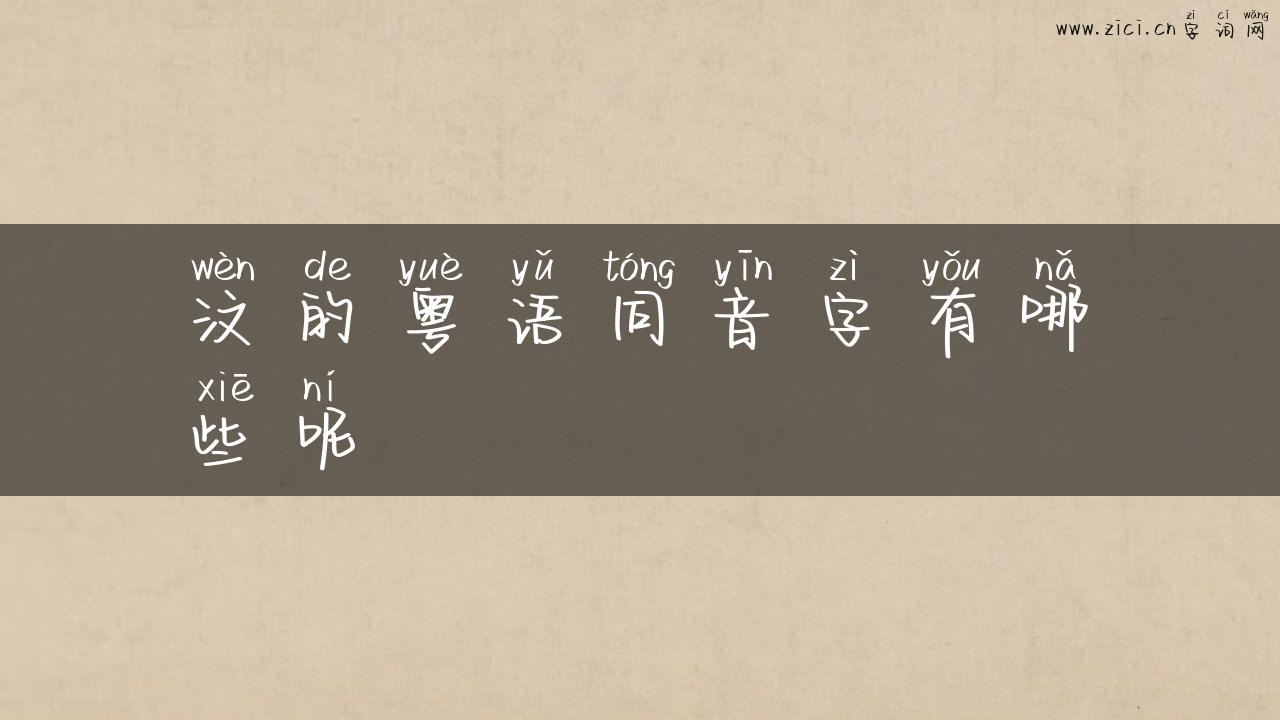 zì cí wǎng
www.zici.cn 字词网
wèn de yuè yǔ tóng yīn zì yǒu nǎ
汶的粤语同音字有哪
xiē ní
些呢